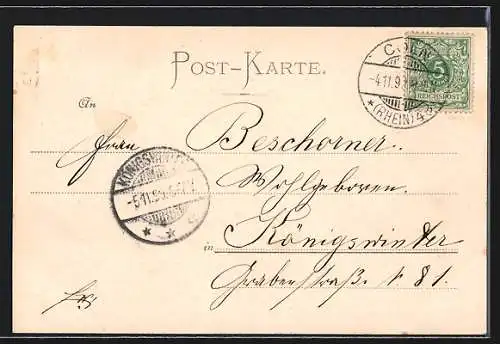 POST-KARTE.
CÖLN
-4.11.9
* (RHEIN) 4
5
REICHSPOST
An
Herrn Beschorner
Wohlgeboren
KÖNIGSWINTER
-5.11.9
in Königswinter
Grabenstraße N. 81.